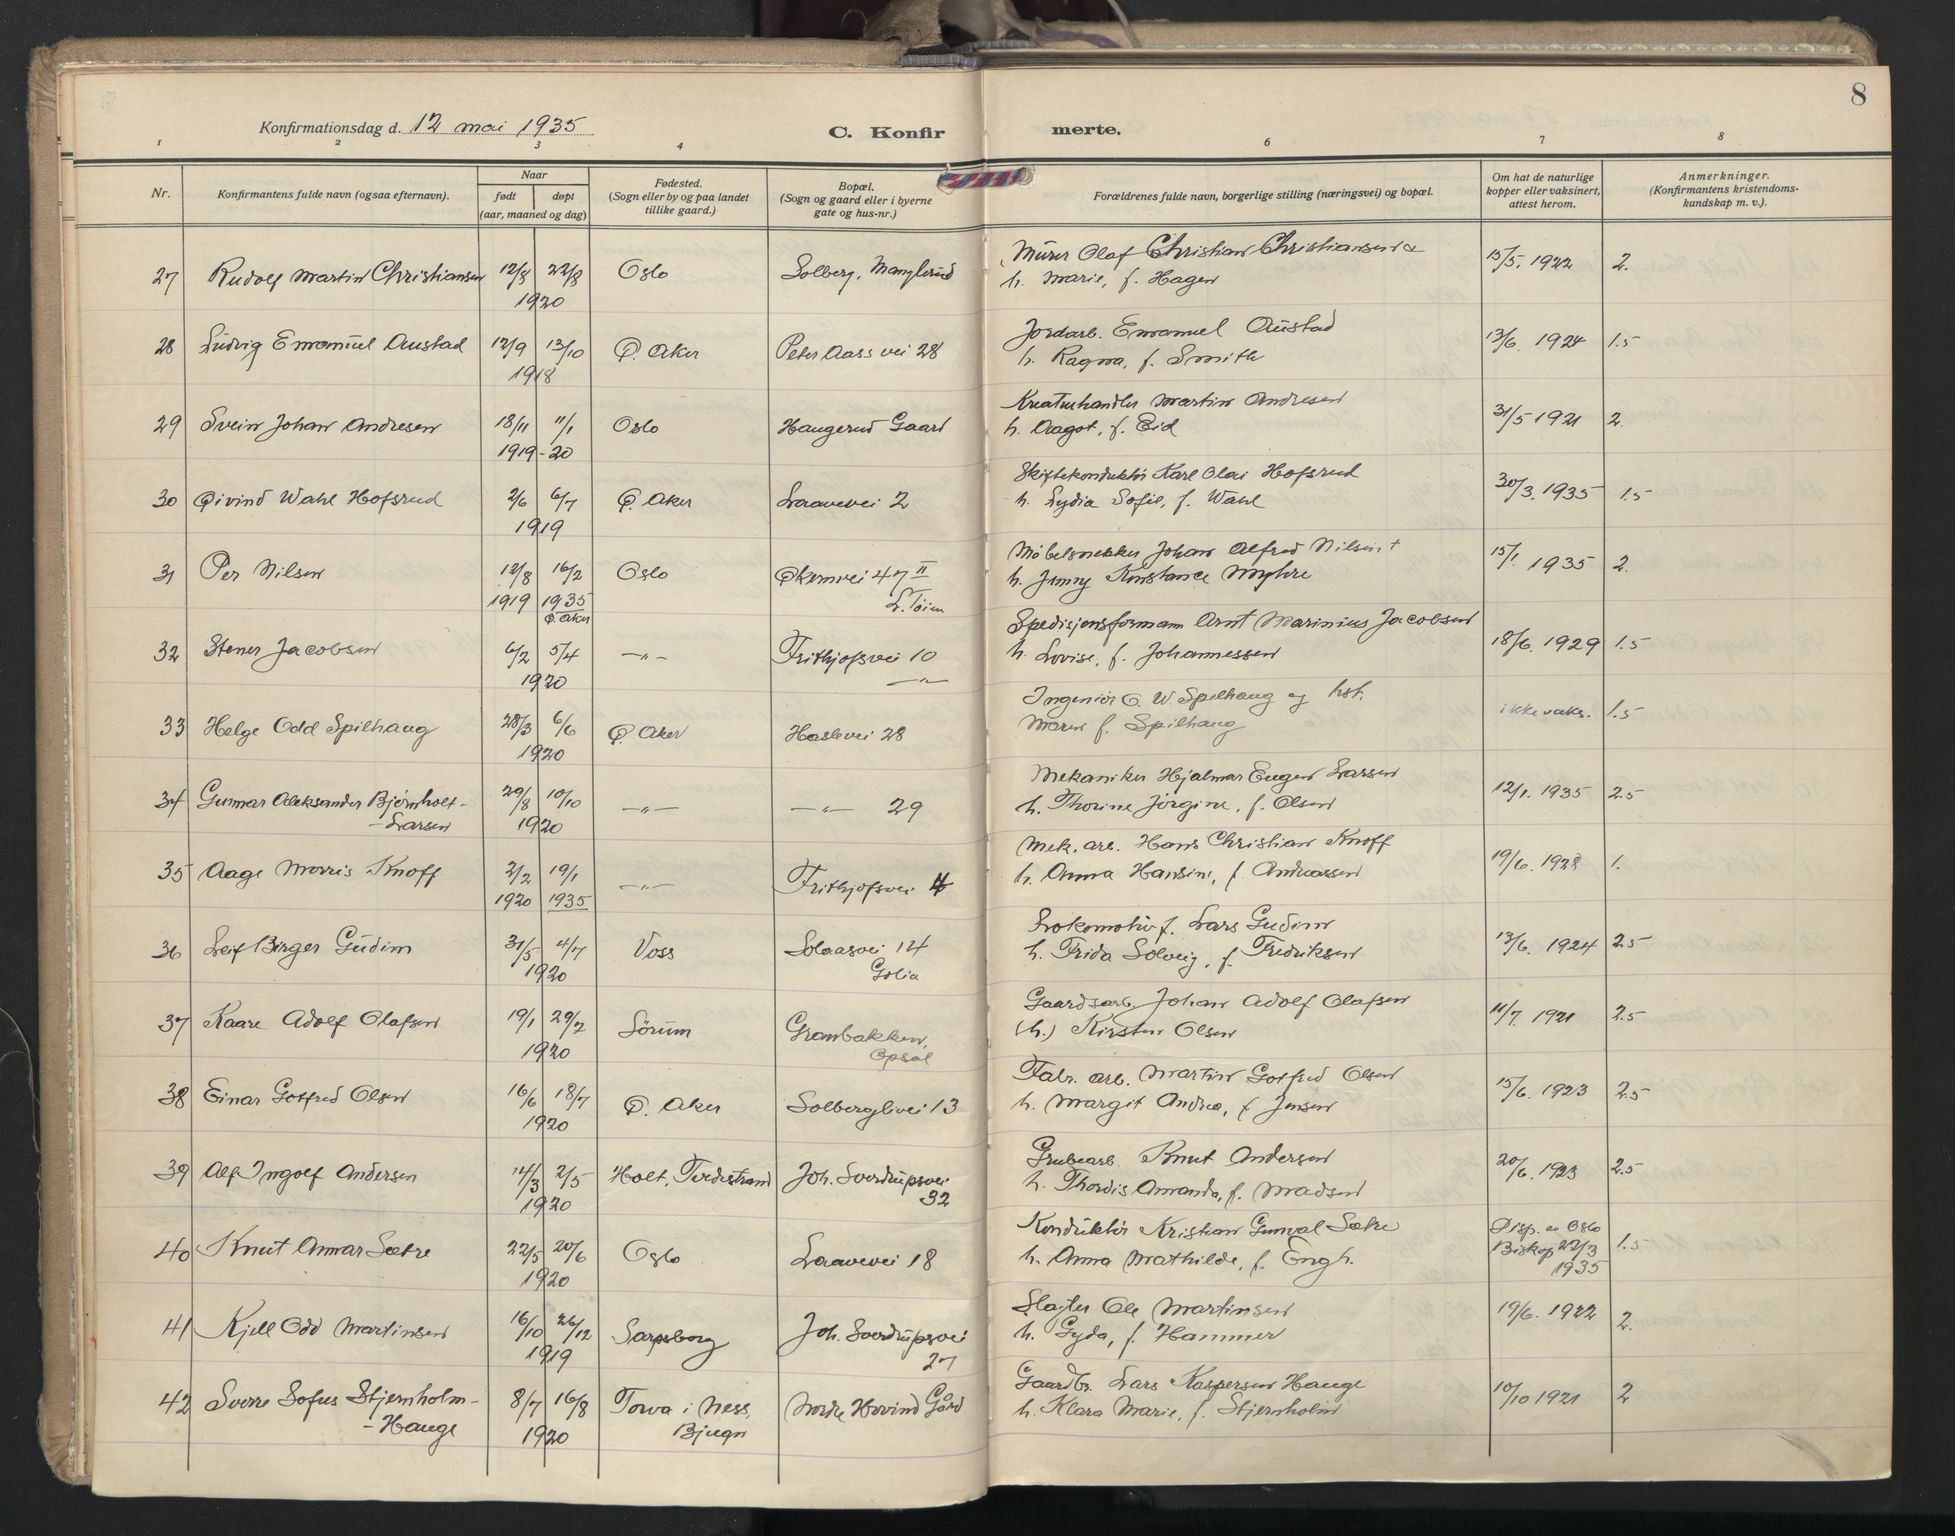 8
Konfirmationsdag d. 12 mai 1935
C. Konfirmerte.
1 2 3 4 6 7 8
Nr.
Konfirmantens fulde navn (ogsaa efternavn).
Naar
født døpt
(aar, maaned og dag)
Fødested.
(Sogn eller by og paa landet
tillike gaard.)
Bopæl.
(Sogn og gaard eller i byerne
gate og hus-nr.)
Forældrenes fulde navn, borgerlige stilling (næringsvei) og bopæl.
Om hat de naturlige
kopper eller vaksinert,
attest herom.
Anmerkninger.
(Konfirmantens kristendoms-
kundskap m. v.).
27 Rudolf Martin Christiansen 12/8 22/8 Oslo Solberg, Manglerud Murer Olaf Christian Christiansen & 15/5. 1922 2.
1920 h. Marie, f. Hagen
28 Ludvig Emanuel Austad 12/9 13/10 Ø. Aker Peter Aass vei 28 Jordarb. Emanuel Austad 13/6. 1924 1.5
1918 h. Ragna, f. Smith
29 Svein Johan Andresen 18/11 11/1 Oslo Haugerud Gaard Kreaturhandler Martin Andresen 31/5 1921 2.
1919-20 h. Aagot, f. Eid
30 Øivind Wahl Hofsrud 2/6 6/7 Ø. Aker Laavevei 2 Skiftekonduktør Karl Olai Hofsrud 30/3. 1935 1.5
1919 h. Lydia Sofie, f. Wahl
31 Per Nilsen 12/8 16/2 Oslo Økernvei 47 II Møbelsnekker Johan Alfred Nilsen + 15/1. 1935 2.
1919 1935 L. Tøien h. Jenny Konstance Myhre
Ø. Aker
32 Stener Jacobsen 6/2 5/4 —„— Frithjofsvei 10 Spedisjonsformann Arnt Marinius Jacobsen 18/6. 1929 1.5
1920 —„— h. Lovise, f. Johannessen
33 Helge Odd Spilhaug 28/3 6/6 Ø. Aker Haslevei 28 Ingeniør O. W. Spilhaug og hst. ikke vaks. 1.5
1920 Maren f. Spilhaug
34 Gunnar Aleksander Bjørnholt- 29/8 10/10 —„— —„— 29 Mekaniker Hjalmar Eugen Larsen 12/1. 1935 2.5
-Larsen 1920 h. Thorine Jørgine, f. Olsen
35 Aage Morris Knoff 2/2 19/1 —„— Frithjofsvei 4 Mek. arb. Hans Christian Knoff 19/6. 1928 1.
1920 1935 h. Anna Hansine, f. Andreassen
36 Leif Birger Gudim 31/5 4/7 Voss Solaasvei 14 Lokomotivf. Lars Gudim 13/6. 1924 2.5
1920 Golia h. Frida Solveig, f. Fredriksen
37 Kaare Adolf Olafsen 19/1 29/2 Sörum Granbakken, Gaardsarb. Johan Adolf Olafsen 11/7. 1921 2.5
1920 Opsal (h.) Kirsten Olsen
38 Einar Gotfred Olsen 16/6 18/7 Ø. Aker Solberglivei 13 Fabr. arb. Martin Gotfred Olsen 15/6. 1923 2.5
1920 h. Margit Andrea, f. Jensen
39 Alf Ingolf Andersen 14/3 2/5 Holt, Tvedestrand Joh. Sverdrupsvei Grubearb. Knut Andersen 20/6. 1923 2.5
1920 32 h. Thordis Amanda, f. Madsen
40 Knut Annar Sætre 22/5 20/6 Oslo Laavevei 18 Konduktør Kristian Gunval Sætre Disp. av Oslo 1.5
1920 h. Anna Mathilde, f. Engh. Biskop 22/3
1935
41 Kjell Odd Martinsen 16/10 26/12 Sarpsborg Joh. Sverdrupsvei Slagter Ole Martinsen 19/6. 1922 2.
1919 27 h. Gyda, f. Hammer
42 Sverre Sofus Stjernholm- 8/7 16/8 Torva i Ness, Nordre Hovind Gård Gaardbr. Lars Kaspersen Hauge 10/10 1921 2
-Hauge 1920 Bjugn h. Klara Marie, f. Stjernholm